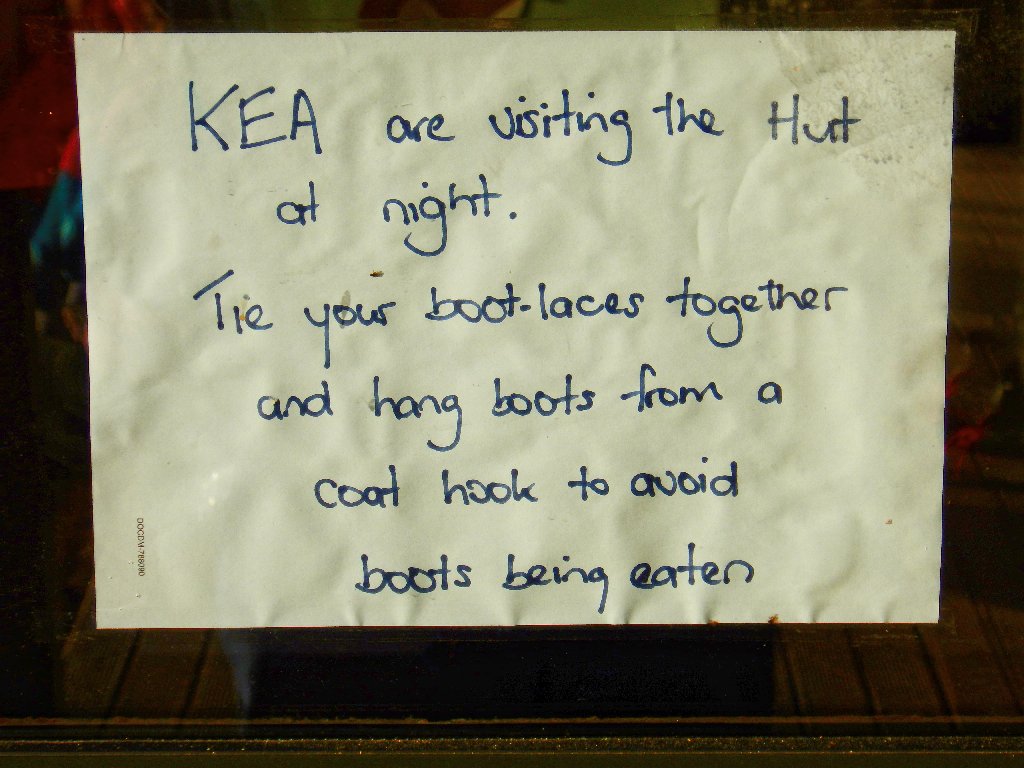 KEA are visiting the Hut
at night.
Tie your boot-laces together
and hang boots from a
coat hook to avoid
boots being eaten